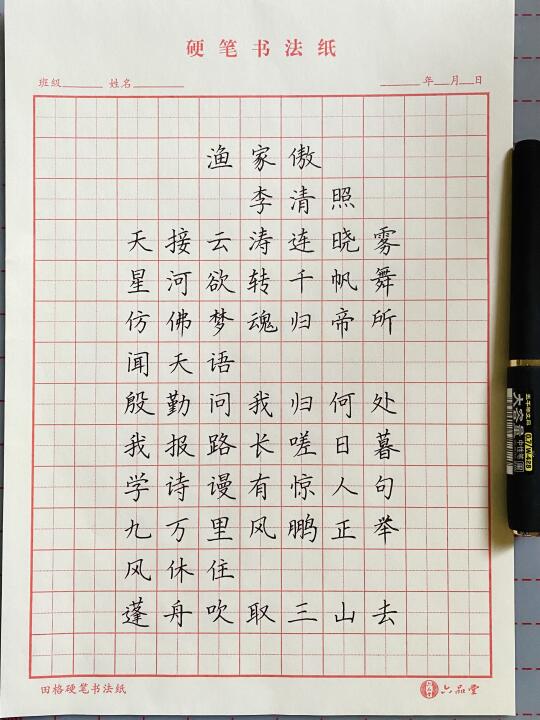 硬笔书法纸
班级 姓名 年 月 日
渔家傲
李清照
天接云涛连晓雾
星河欲转千帆舞
仿佛梦魂归帝所
闻天语
殷勤问我归何处
我报路长嗟日暮
学诗谩有惊人句
九万里风鹏正举
风休住
蓬舟吹取三山去
田格硬笔书法纸
六品堂
大容量
中性笔